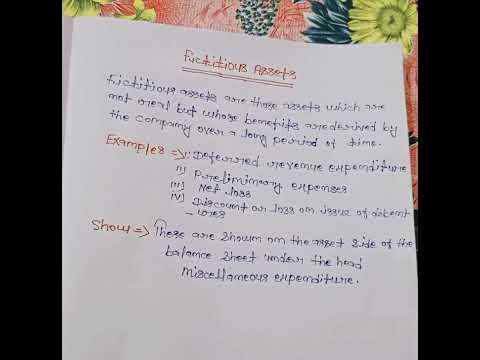 Fictitious Assets
Fictitious assets are those assets which are
not real but whose benefits are derived by
the company over a long period of time.
Examples => i) Deferred revenue expenditure
ii) Preliminary expenses
iii) Net loss
iv) Discount or loss on issue of debent
- ures
Show => These are shown on the asset side of the
balance sheet under the head
Miscellaneous expenditure.